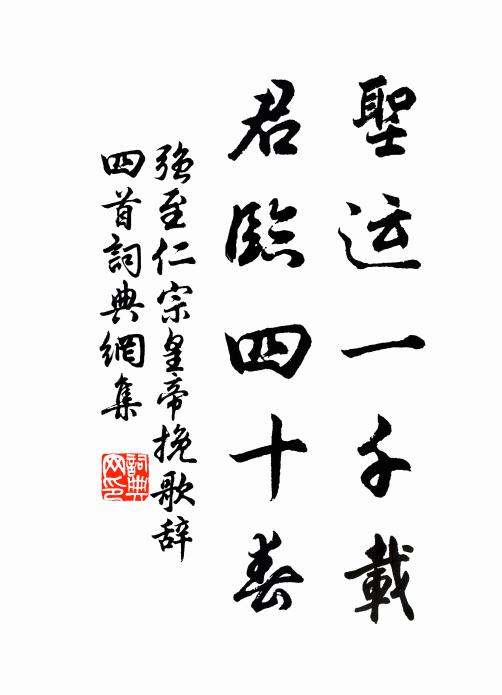 聖运一千載
君臨四十春
強至仁宗皇帝挽歌辞
四首詞典網集
詞典网印